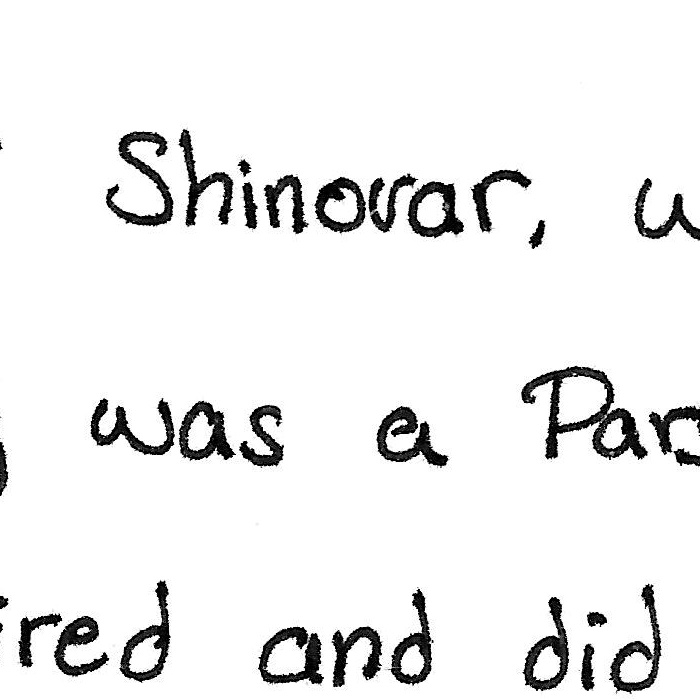 Shinovar, w
was a Pars
ired and did